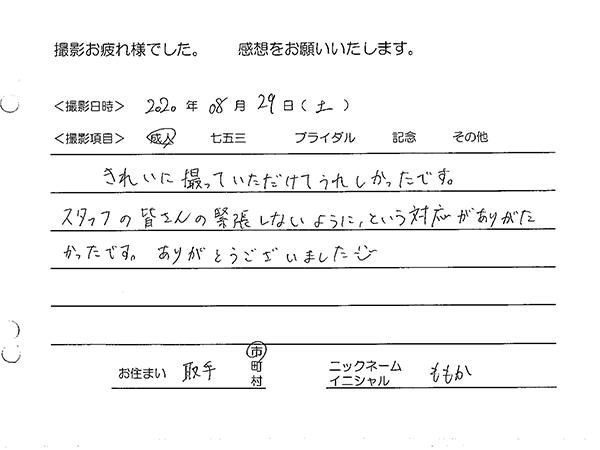 撮影お疲れ様でした。 感想をお願いいたします。
＜撮影日時＞ 2020 年 08 月 29 日（土）
＜撮影項目＞ 成人 七五三 ブライダル 記念 その他
きれいに撮っていただけてうれしかったです。
スタッフの皆さんの緊張しないように、という対応がありがた
かったです。ありがとうございました☺
お住まい 取手 市 町 村 ニックネーム イニシャル ももか